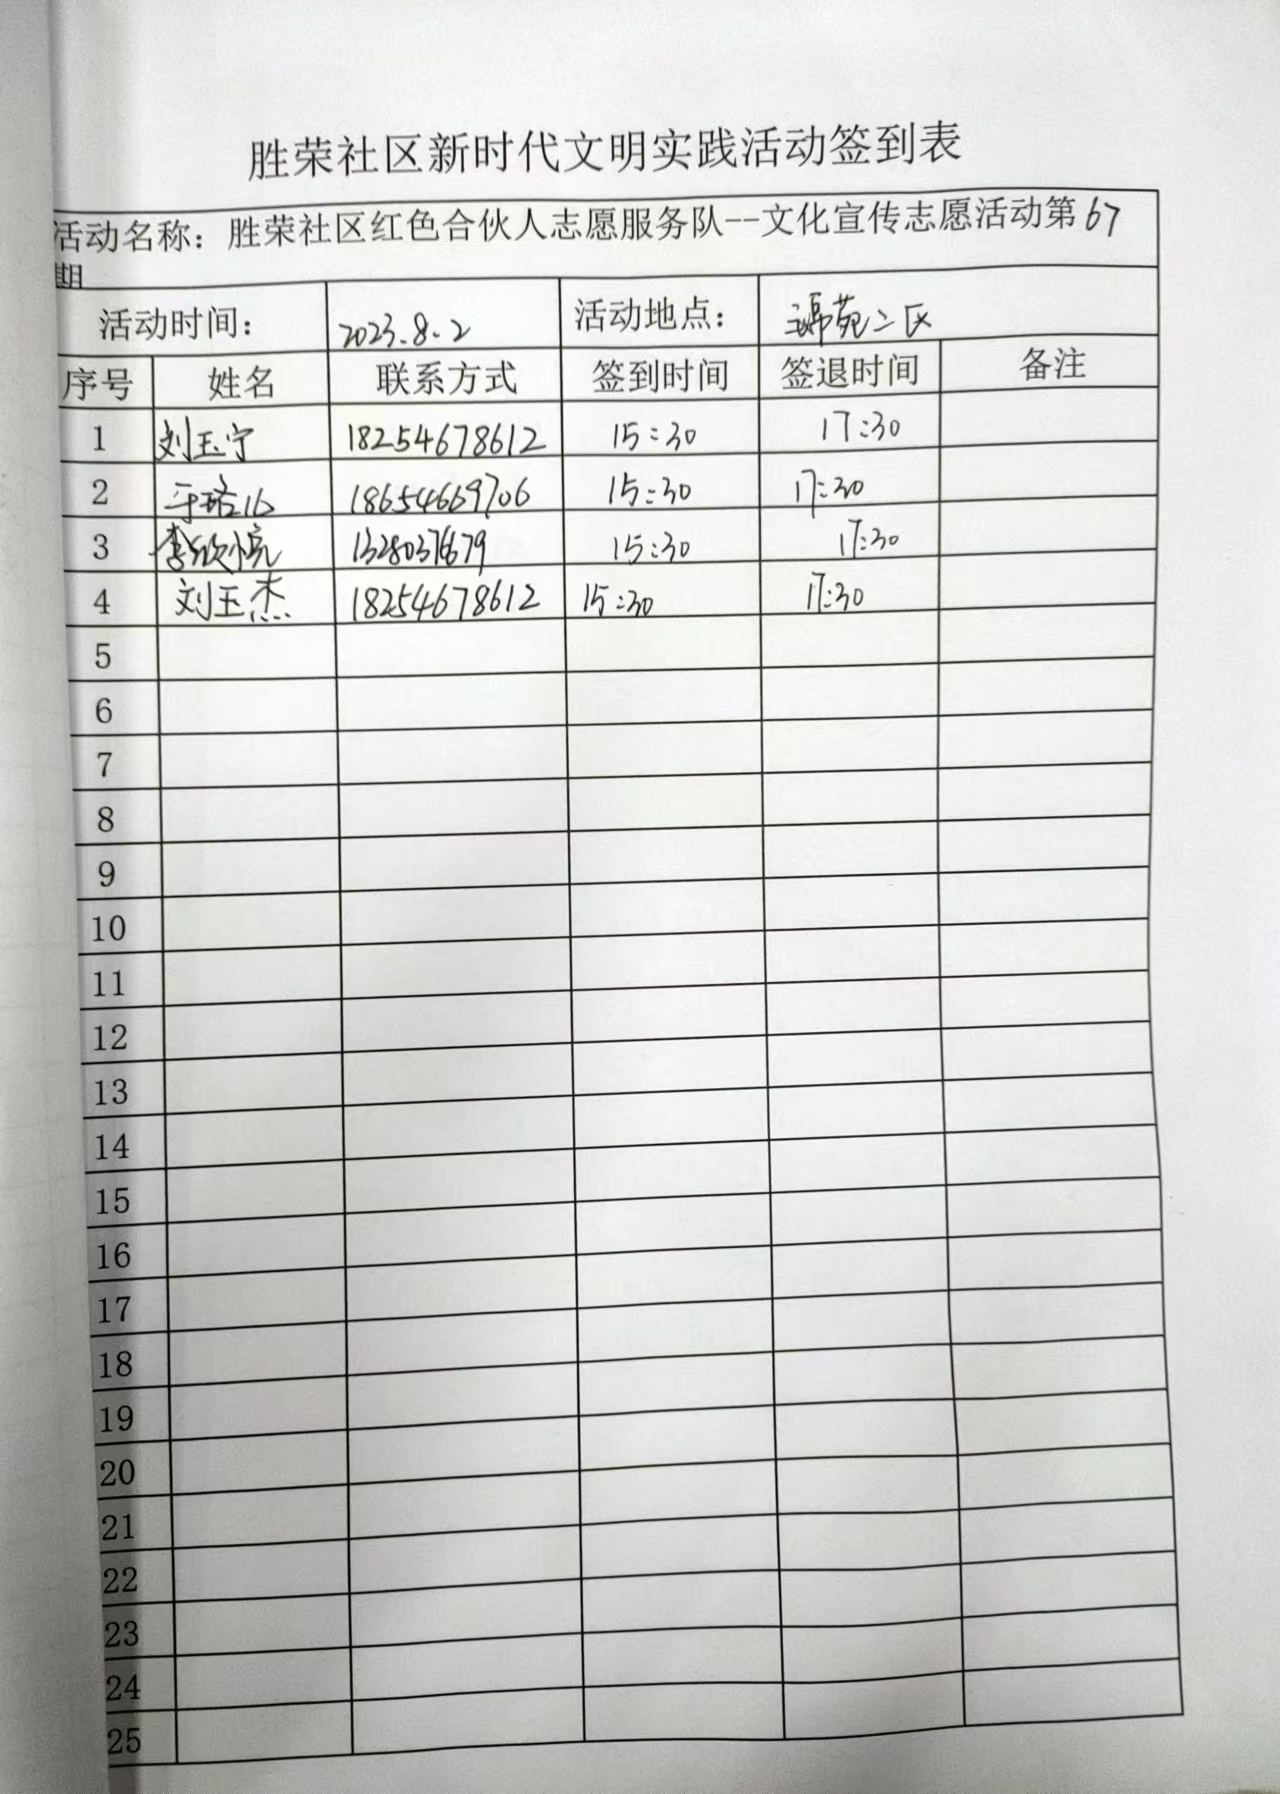 胜荣社区新时代文明实践活动签到表
活动名称：胜荣社区红色合伙人志愿服务队--文化宣传志愿活动第67
期
活动时间： 2023.8.2 活动地点： 苑二区
序号 姓名 联系方式 签到时间 签退时间 备注
1 刘玉宁 18254678612 15:30 17:30
2 18654669706 15:30 17:30
3 15:30 17:30
4 刘玉杰 18254678612 15:30 17:30
5
6
7
8
9
10
11
12
13
14
15
16
17
18
19
20
21
22
23
24
25